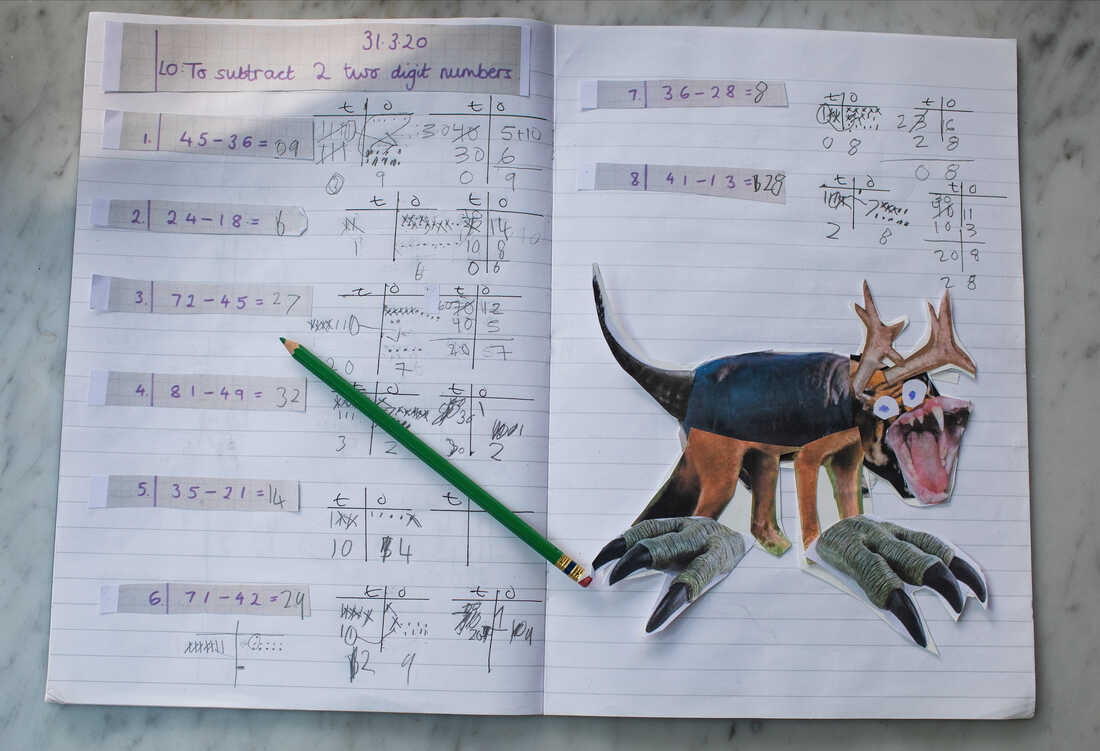 31.3.20
LO: To subtract 2 two digit numbers
1. 45-36=09
t o
0 9
t o
3040 5+10
30 6
0 9
2. 24-18= 6
t o
6
t o
14
10 8
0 6
3. 72-45=27
t o
20 7
t o
6070 12
40 5
20
4. 81-49= 32
t o
3 2
t o
2
5. 35-21=14
t o
10 4
t
6. 71-42=29
t o
2 9
t o
7. 36-28=8
t o
0 8
t o
2 3 16
2 8
0 8
8 41-13=28
t o
2 8
t o
11
10 3
20 8
2 8